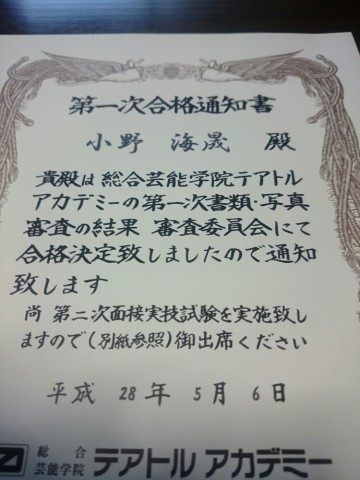 第一次合格通知書
小野 海晟 殿
貴殿は総合芸能学院テアトル
アカデミーの第一次書類・写真
審査の結果 審査委員会にて
合格決定致しましたので通知
致します
尚 第二次面接実技試験を実施致し
ますので(別紙参照)御出席ください
平成 28 年 5 月 6 日
総合
芸能学院 テアトル アカデミー